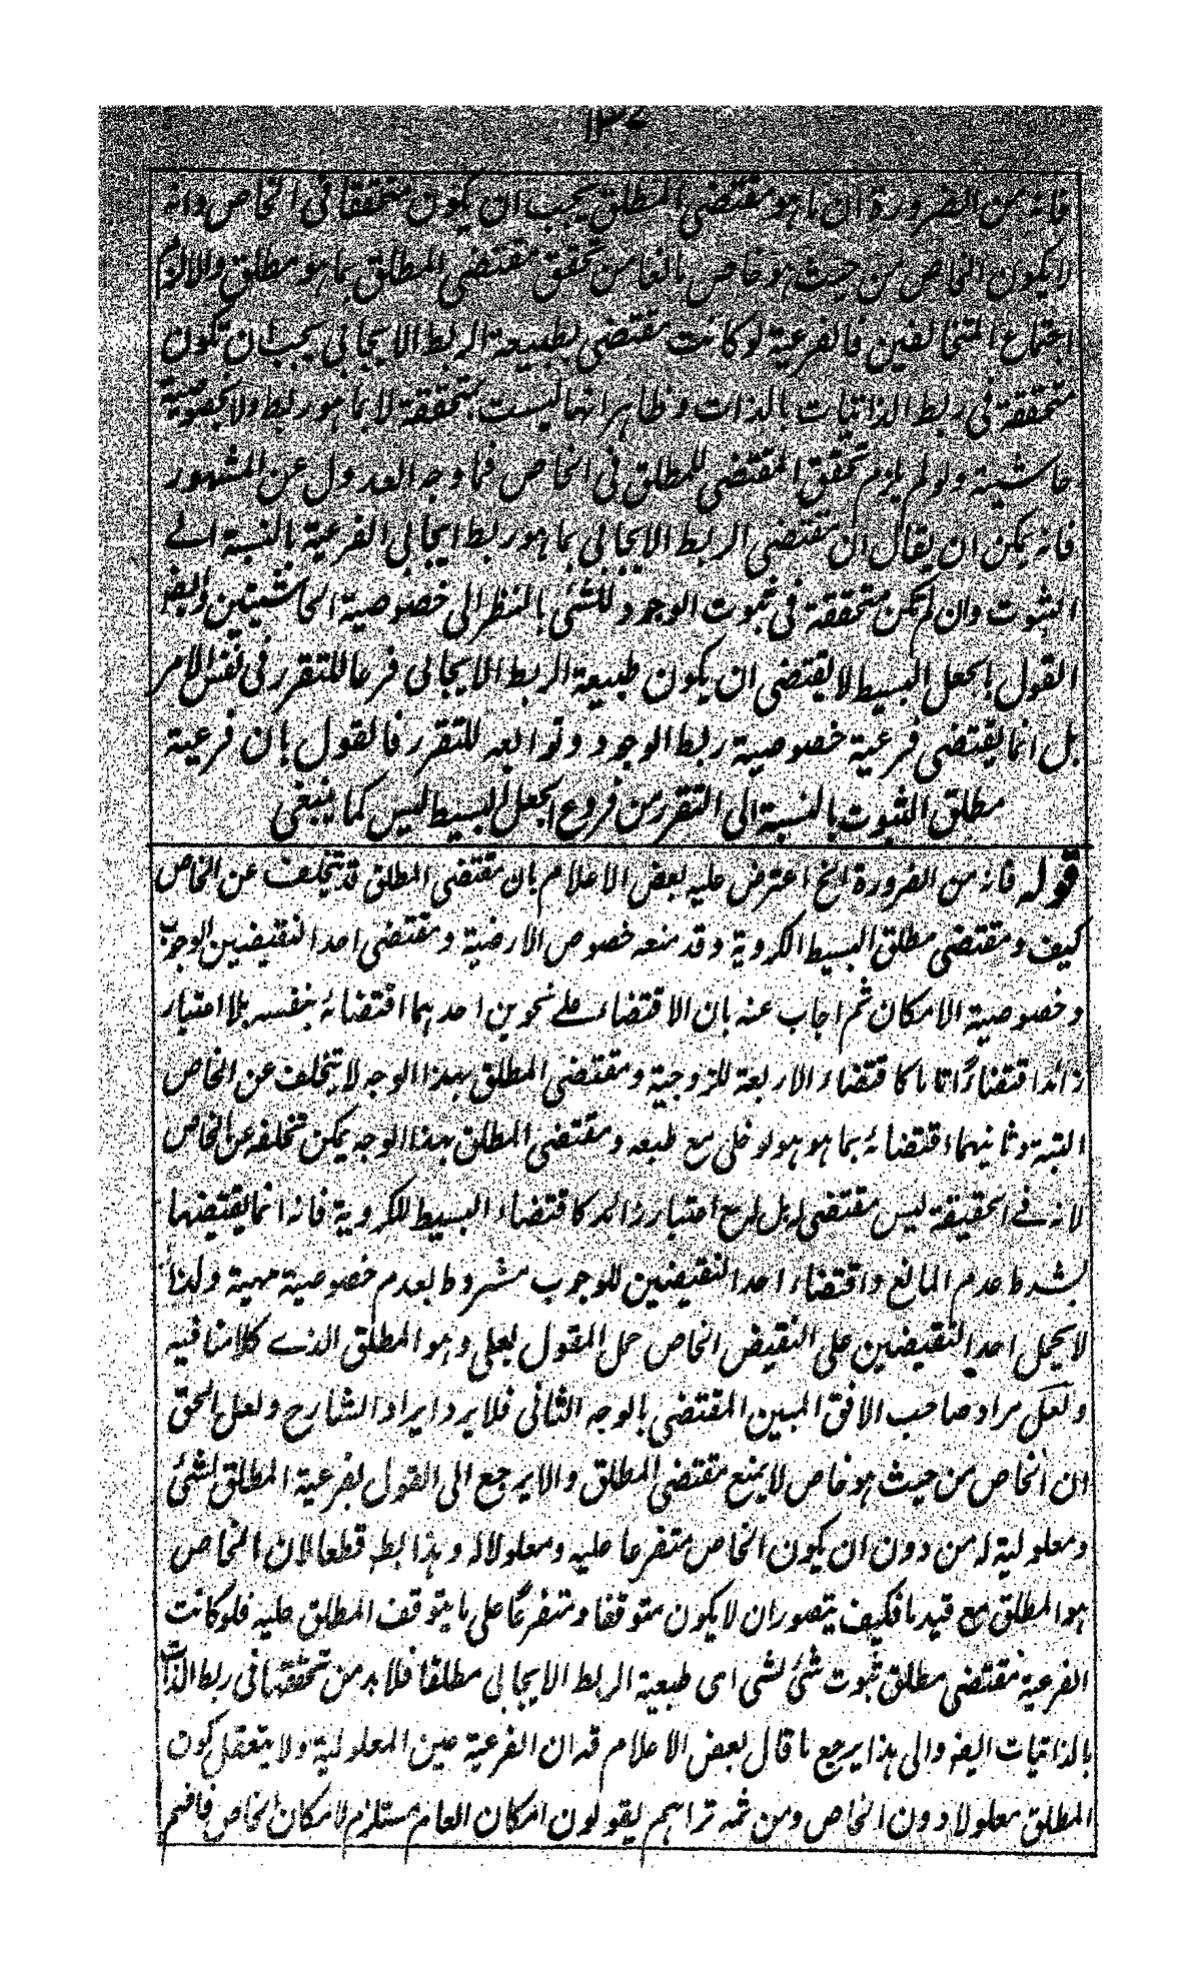 ١٣٤
فانه من الضرورة ان ما هو مقتضى المطلق يجب ان يكون متحققا فى الخاص وانه
لا يكون الخاص من حيث هو خاص مانعا من تحقق مقتضى المطلق بما هو مطلق والا لزم
اجتماع المتخالفين فالفرعية لو كانت مقتضى لطبيعة الربط الايجابى يجب ان تكون
متحققة فى ربط الذاتيات بالذات وظاهر انها ليست بمتحققة لا بما هو ربط ولا بخصوصية
حاشية ولو لم يلزم تحقق المقتضى للمطلق فى الخاص فما وجه العدول عن المشهور
فانه يمكن ان يقال ان مقتضى الربط الايجابى بما هو ربط ايجابى الفرعية بالنسبة الے
الثبوت وان لم تكن متحققة فى ثبوت الوجود للشئ بالنظر الى خصوصية الحاشيتين وايضا
القول بالجعل البسيط لا يقتضى ان يكون طبيعة الربط الايجابى فرعا للتقرر فى نفس الامر
بل انما يقتضى فرعية خصوصية ربط الوجود وتوابعه للتقرر فالقول بان فرعية
مطلق الثبوت بالنسبة الى التقرر من فروع الجعل البسيط ليس كما ينبغى
قوله فانه من الضرورة الخ اعترض عليه بعض الاعلام بان مقتضى المطلق قد يتخلف عن الخاص
كيف ومقتضى مطلق البسيط الكروية وقد منعه خصوص الارضية ومقتضى احد النقيضين الوجوب
وخصوصية الامكان ثم اجاب عنه بان الاقتضاء علے نحوين احدهما اقتضائه بنفسه بلا اعتبار
زائد اقتضاءً تاما كاقتضاء الاربعة للزوجية ومقتضى المطلق بهذا الوجه لا يتخلف عن الخاص
البتة وثانيهما اقتضائه بما هو هو لو خلى مع طبعه ومقتضى المطلق بهذا الوجه يمكن تخلفه عن الخاص
لانه فے الحقيقة ليس مقتضى له بل له مع اعتبار زائد كاقتضاء البسيط للكروية فانه انما يقتضيها
بشرط عدم المانع واقتضاء احد النقيضين للوجوب مشروط بعدم خصوصية مهية ولذا
لا يحمل احد النقيضين على النقيض الخاص حمل المقول بعلى وهو المطلق الذے كلامنا فيه
ولعل مراد صاحب الافق المبين المقتضى بالوجه الثانى فلا يرد ايراد الشارح ولعل الحق
ان الخاص من حيث هو خاص لا يمنع مقتضى المطلق والا يرجع الى القول بفرعية المطلق لشئ
ومعلولية له من دون ان يكون الخاص متفرعا عليه ومعلولا له وهذا بط قطعا لان الخاص
هو المطلق مع قيد ما فكيف يتصور ان لا يكون متوقفا ومتفرعًا على ما يتوقف المطلق عليه فلو كانت
الفرعية مقتضى مطلق ثبوت شئ لشى اى طبعية الربط الايجابى مطلقا فلا بد من تحققها فى ربط الذات
بالذاتيات ايضه والى هذا يرجع ما قال بعض الاعلام قد ان الفرعية عين المعلولية ولا يتعقل كون
المطلق معلولا دون الخاص ومن ثمه تراهم يقولون امكان العام مستلزم لامكان الخاص فافهم